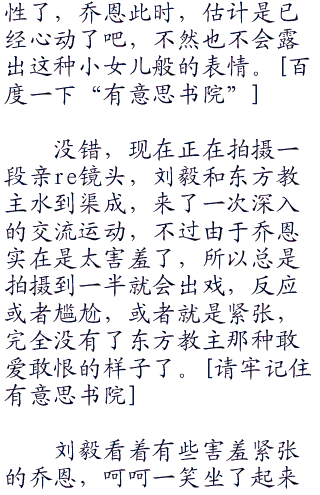 性了，乔恩此时，估计是已
经心动了吧，不然也不会露
出这种小女儿般的表情。[百
度一下“有意思书院”]
没错，现在正在拍摄一
段亲re镜头，刘毅和东方教
主水到渠成，来了一次深入
的交流运动，不过由于乔恩
实在是太害羞了，所以总是
拍摄到一半就会出戏，反应
或者尴尬，或者就是紧张，
完全没有了东方教主那种敢
爱敢恨的样子了。[请牢记住
有意思书院]
刘毅看着有些害羞紧张
的乔恩，呵呵一笑坐了起来